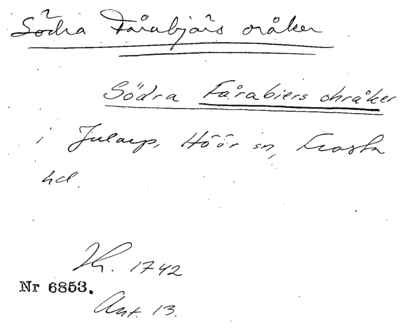 Södra Fårabjärs oråker
Södra Fårabiers ohråker
i Jularp, Höör sn, Frosta
hd.
Kh. 1742
Nr 6853.
Ant. 13.